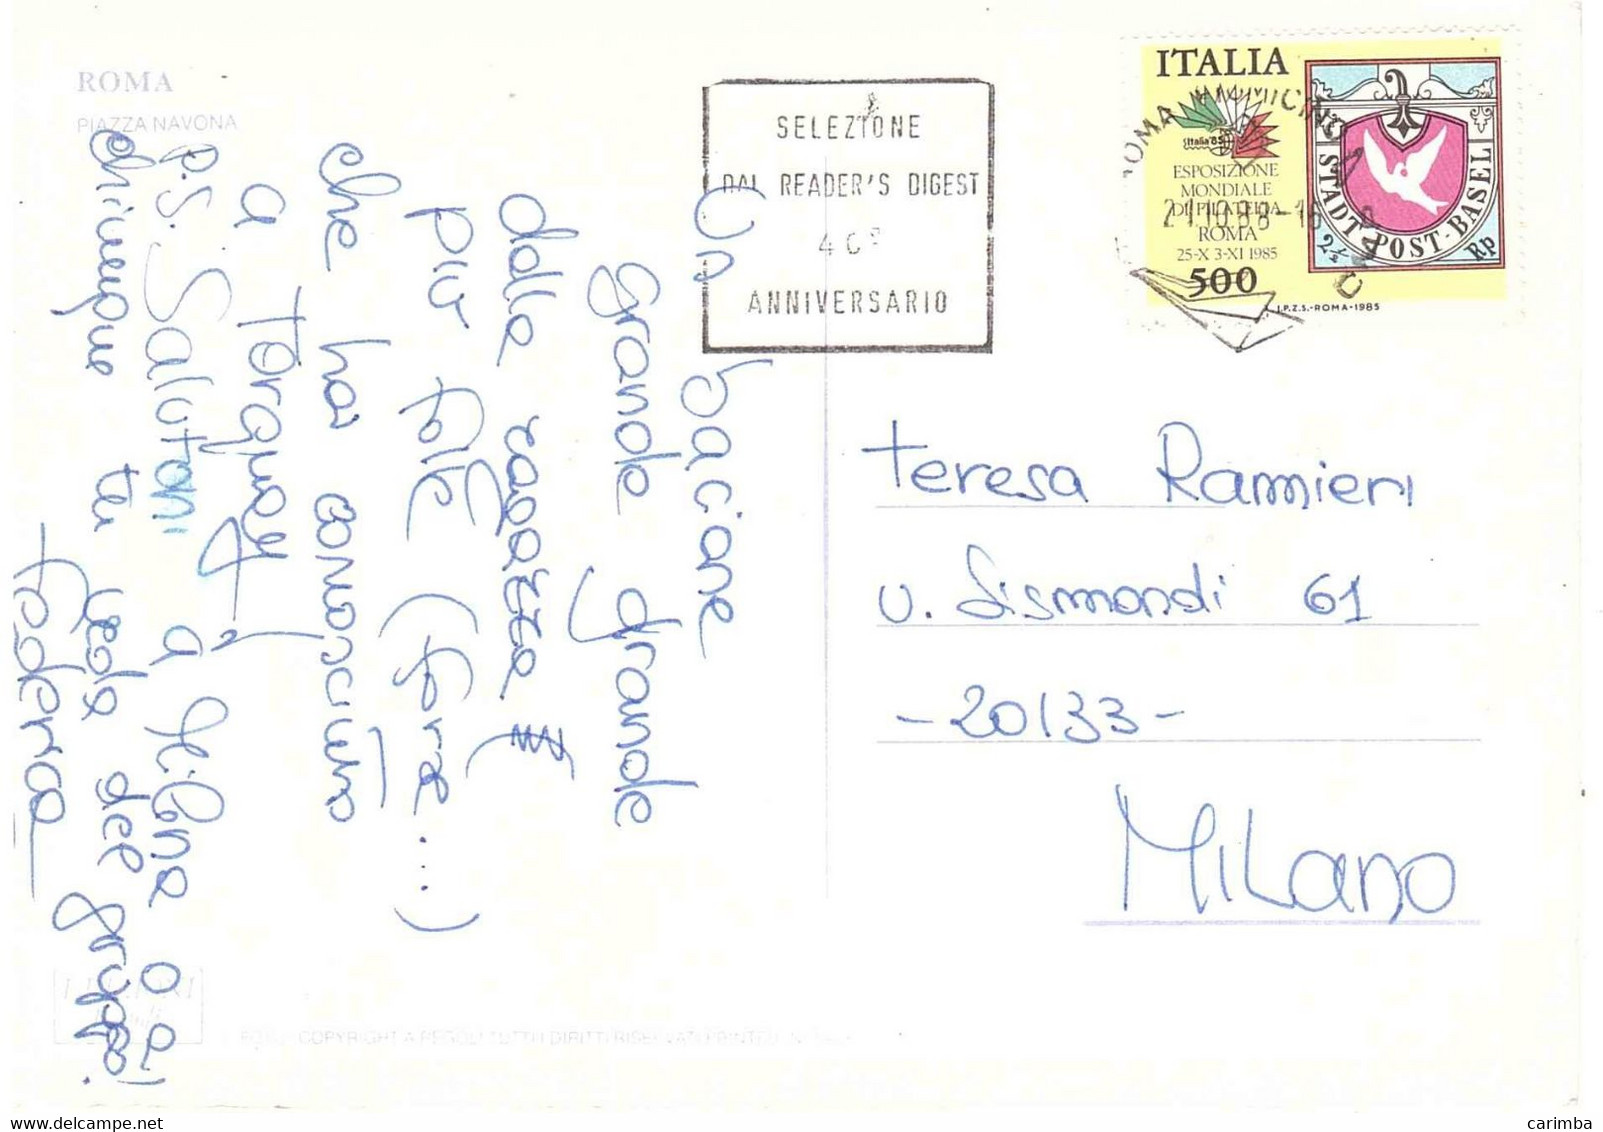 ROMA
PIAZZA NAVONA
Un bacione
grande grande
dalla ragazza
più folle (forse....)
che hai conosciuto
a Torquay!
P.S. Salutoni a Milena o a
chiunque tu veda del gruppo.
Federica
SELEZIONE
DAL READER'S DIGEST
40°
ANNIVERSARIO
ROMA FIUMICINO
21.10.88-16
ITALIA
Italia 85
ESPOSIZIONE
MONDIALE
DI FILATELIA
ROMA
25-X 3-XI 1985
500
STADT POST-BASEL
2½ Rp
I.P.Z.S.-ROMA-1985
Teresa Ramieri
v. Sismondi 61
-20133-
Milano
COPYRIGHT A REGOLI TUTTI I DIRITTI RISERVATI PRINTED IN ITALY
carimba